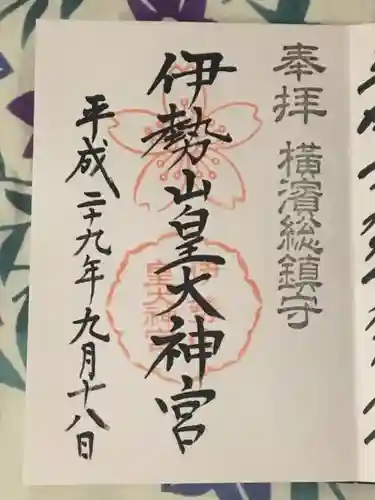 奉拝 横濱総鎮守
伊勢山皇大神宮
平成二十九年九月十八日